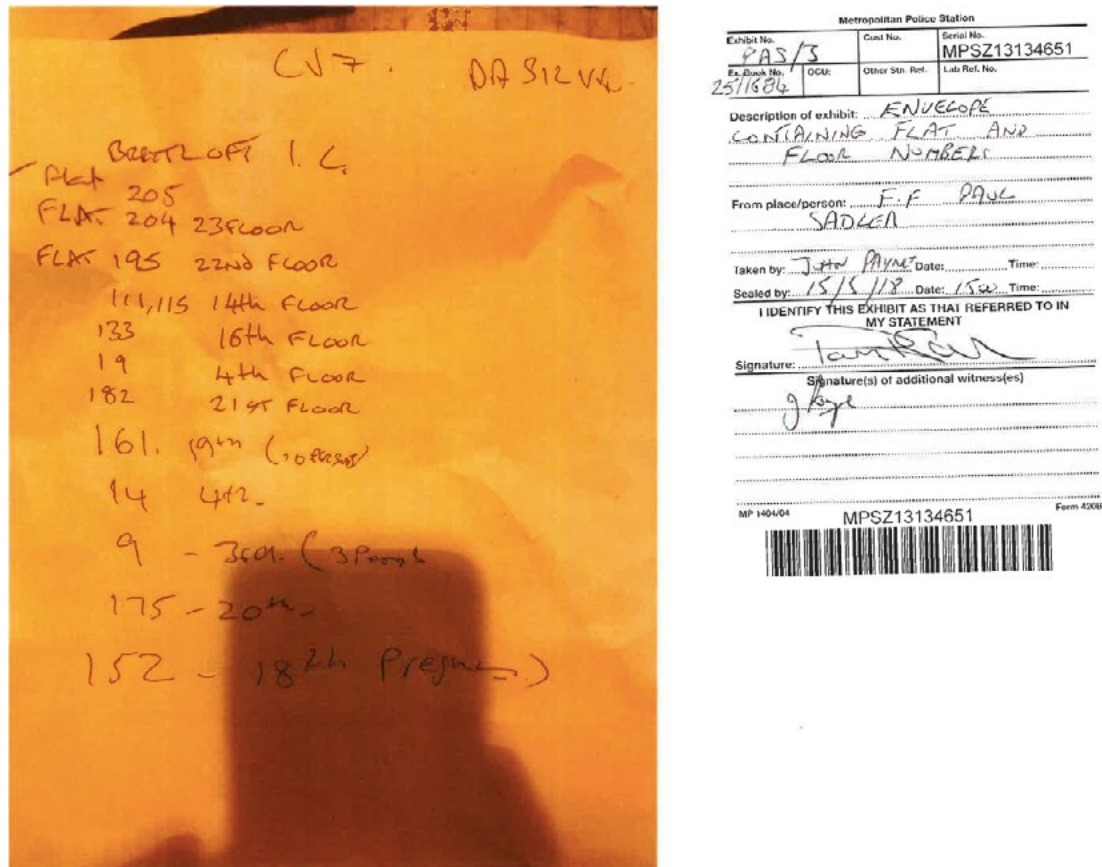 CU7. DA SILVA
BRETTLOFT I.C.
Flat 205
FLAT 204 23 FLOOR
FLAT 195 22ND FLOOR
111, 115 14th FLOOR
133 16th FLOOR
19 4th FLOOR
182 21ST FLOOR
161. 19th (10 PERSONS)
14 4th
9 - 3rd. (3 People
175 - 20th -
152 - 18th Pregnant)
Metropolitan Police Station
Exhibit No. PAS/3
Cust No.
Serial No. MPSZ13134651
Ex. Book No. 25/1684
OCU:
Other Stn. Ref.
Lab Ref. No.
Description of exhibit: ENVELOPE
CONTAINING FLAT AND
FLOOR NUMBERS
From place/person: F.F PAUL
SADLER
Taken by: JOHN PAYNE Date: Time:
Sealed by: 15/5/18 Date: 1500 Time:
I IDENTIFY THIS EXHIBIT AS THAT REFERRED TO IN
MY STATEMENT
Signature:
Signature(s) of additional witness(es)
MP 1404/04
MPSZ13134651
Form 420B